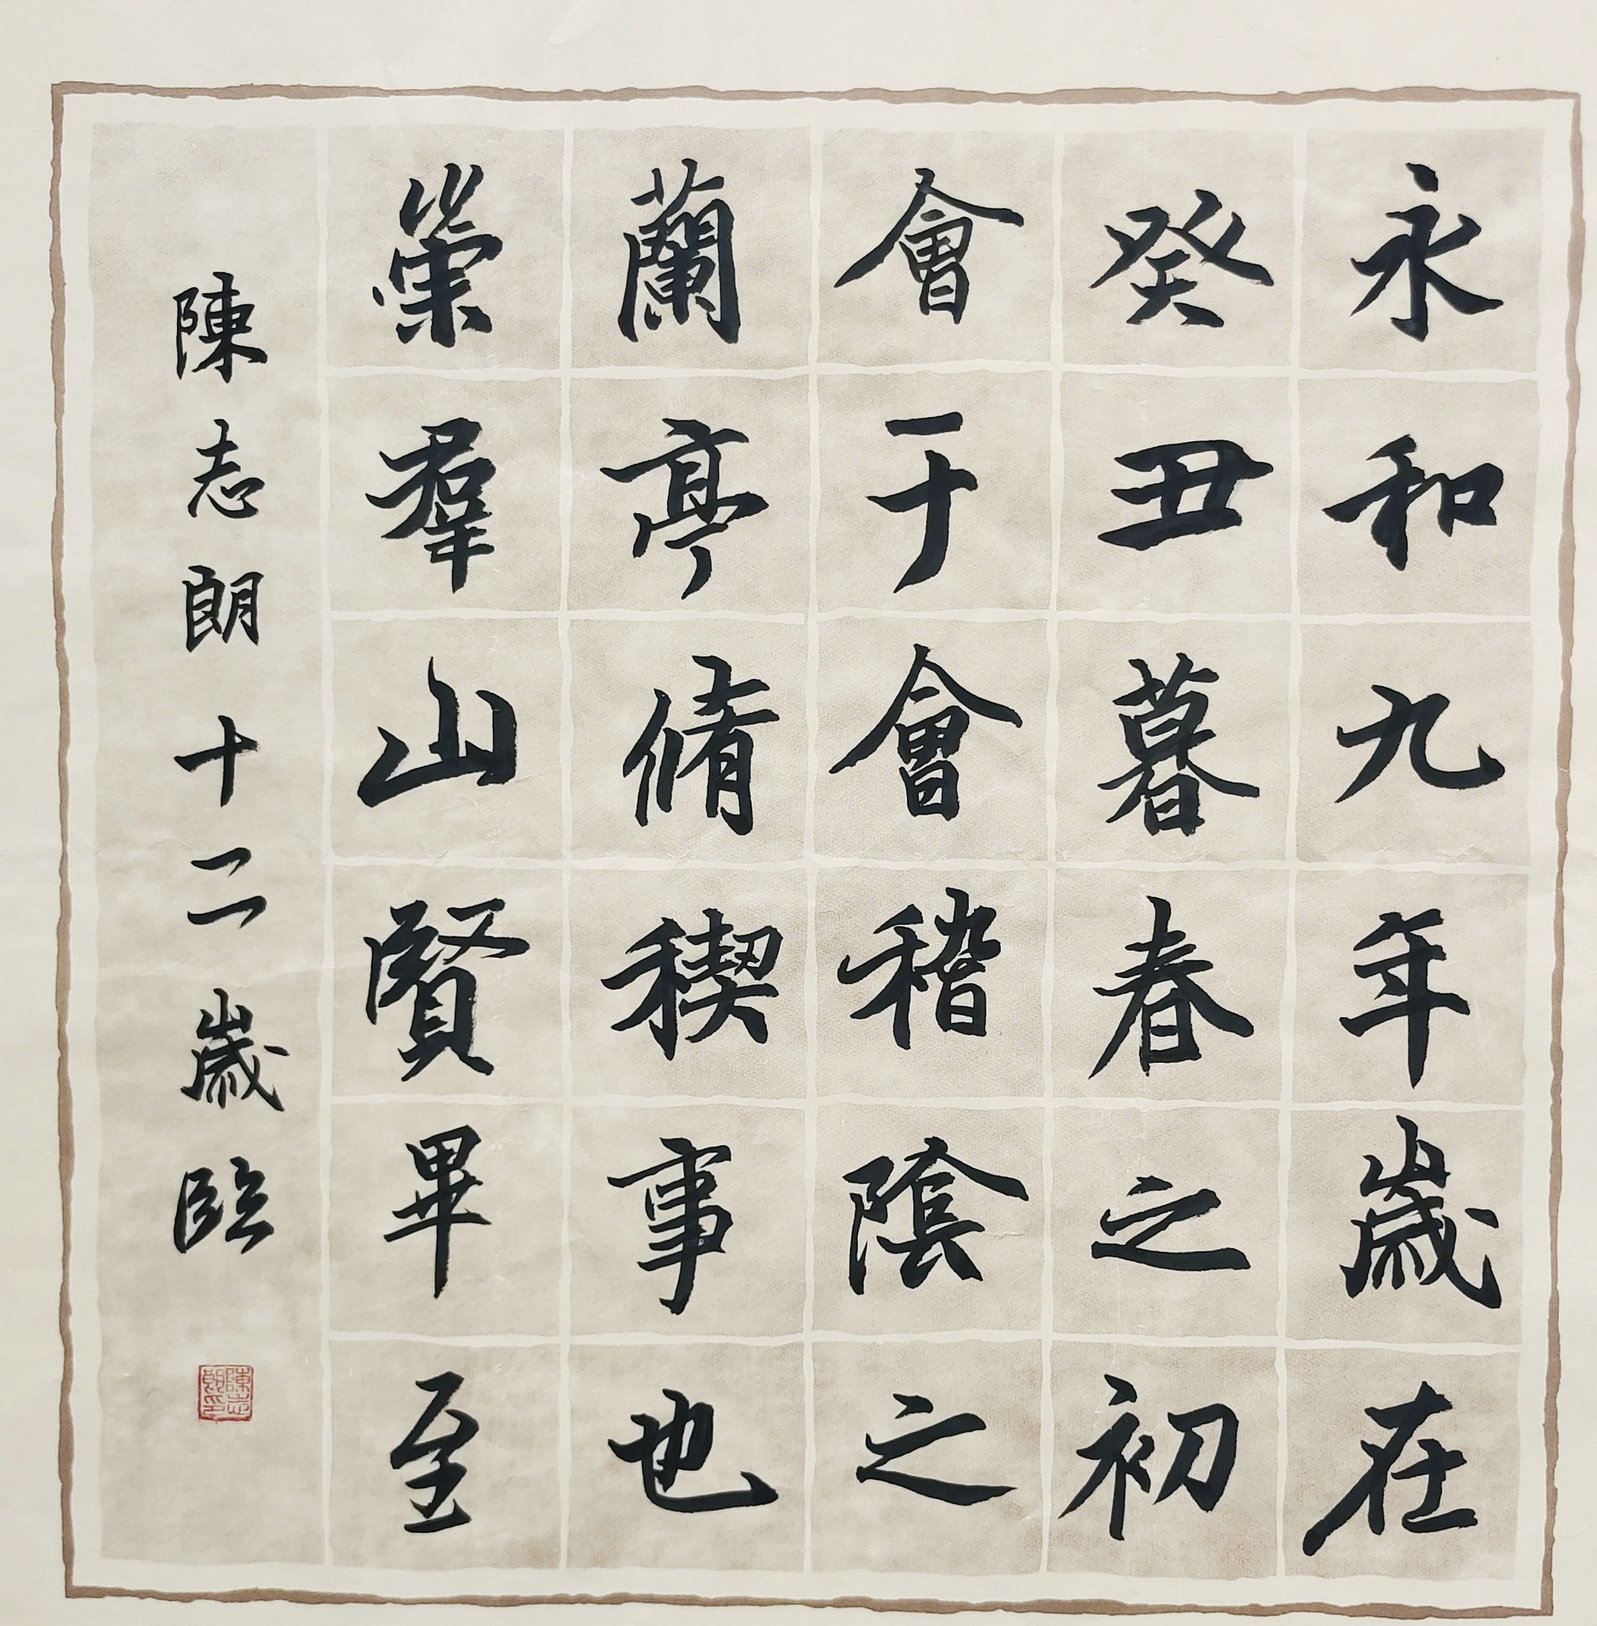 永和九年歲在
癸丑暮春之初
會于會稽陰之
蘭亭脩稧事也
崇羣山賢畢至
陳志朗十二歲臨
陳志朗印